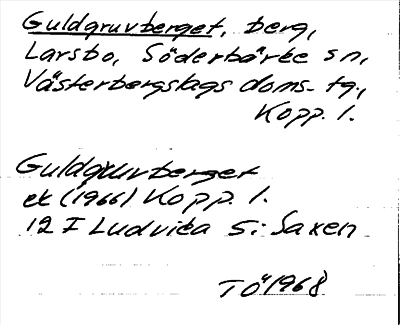 Guldgruvberget, berg,
Larsbo, Söderbärke sn,
Västerbergslags doms. tg.,
Kopp. l.
Guldgruvberget
ek (1966) Kopp. l.
12 F Ludvika S: Saxen
TÖ 1968